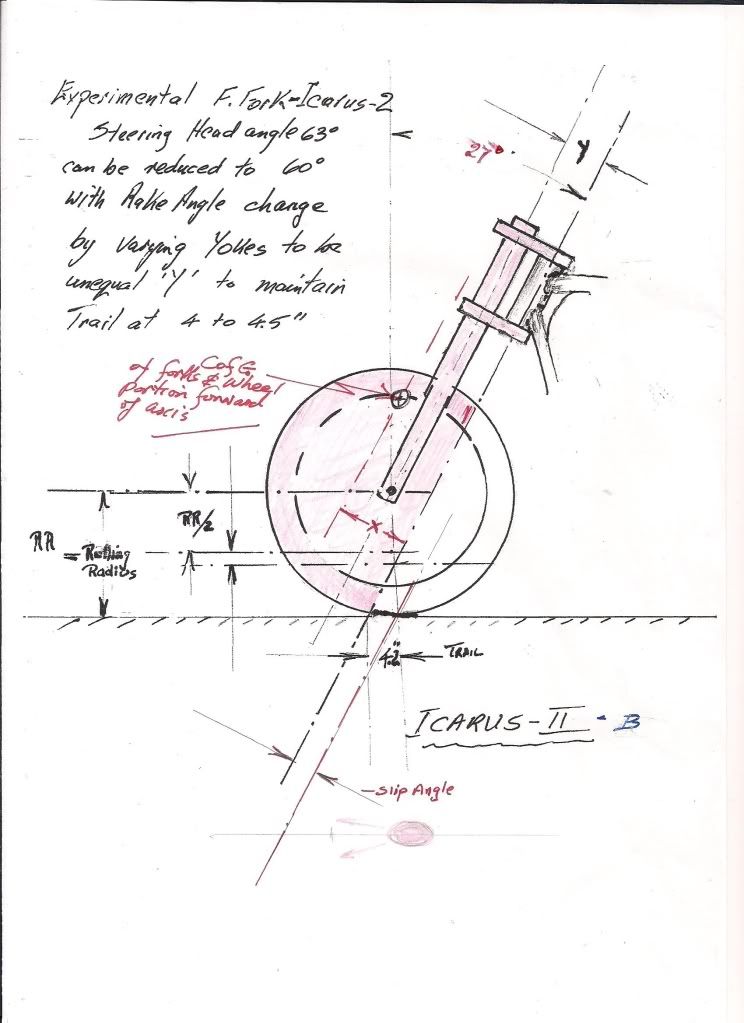 Experimental F. Fork-Icarus-2
Steering Head angle 63°
can be reduced to 60°
with Rake Angle change
by varying Yokes to be
unequal 'Y' to maintain
Trail at 4 to 4.5"
27°
Y
C of G
of forks & wheel
portion forward
of axis
RR/2
RR = Rolling
Radius
X
4.2"
TRAIL
ICARUS-II - B
Slip Angle